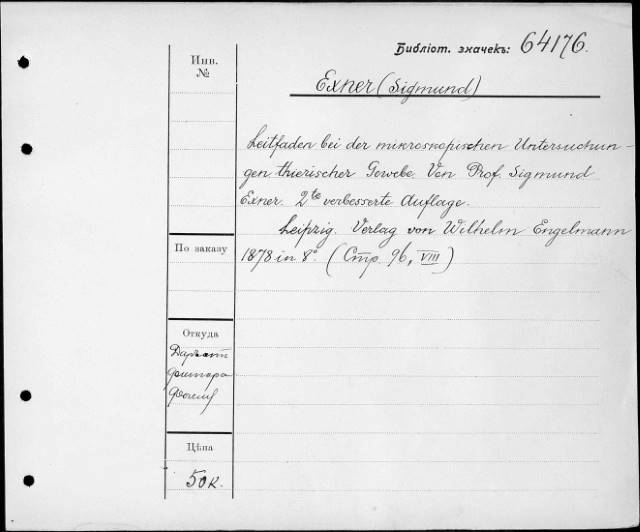 Библіот. значекъ: 64176.
Инв.
№
Exner (Sigmund)
Leitfaden bei der mikroskopischen Untersuchun-
gen thierischer Gewebe. Von Prof. Sigmund
Exner. 2te verbesserte Auflage.
Leipzig. Verlag von Wilhelm Engelmann
1878 in 8°. (Стр. 96, VIII)
По заказу
Откуда
Цѣна
50 к.